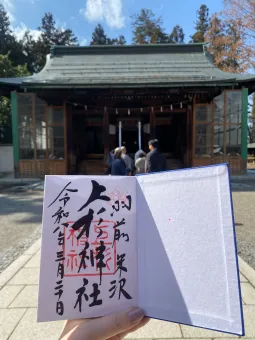 羽前米沢
上杉神社
令和八年三月二日